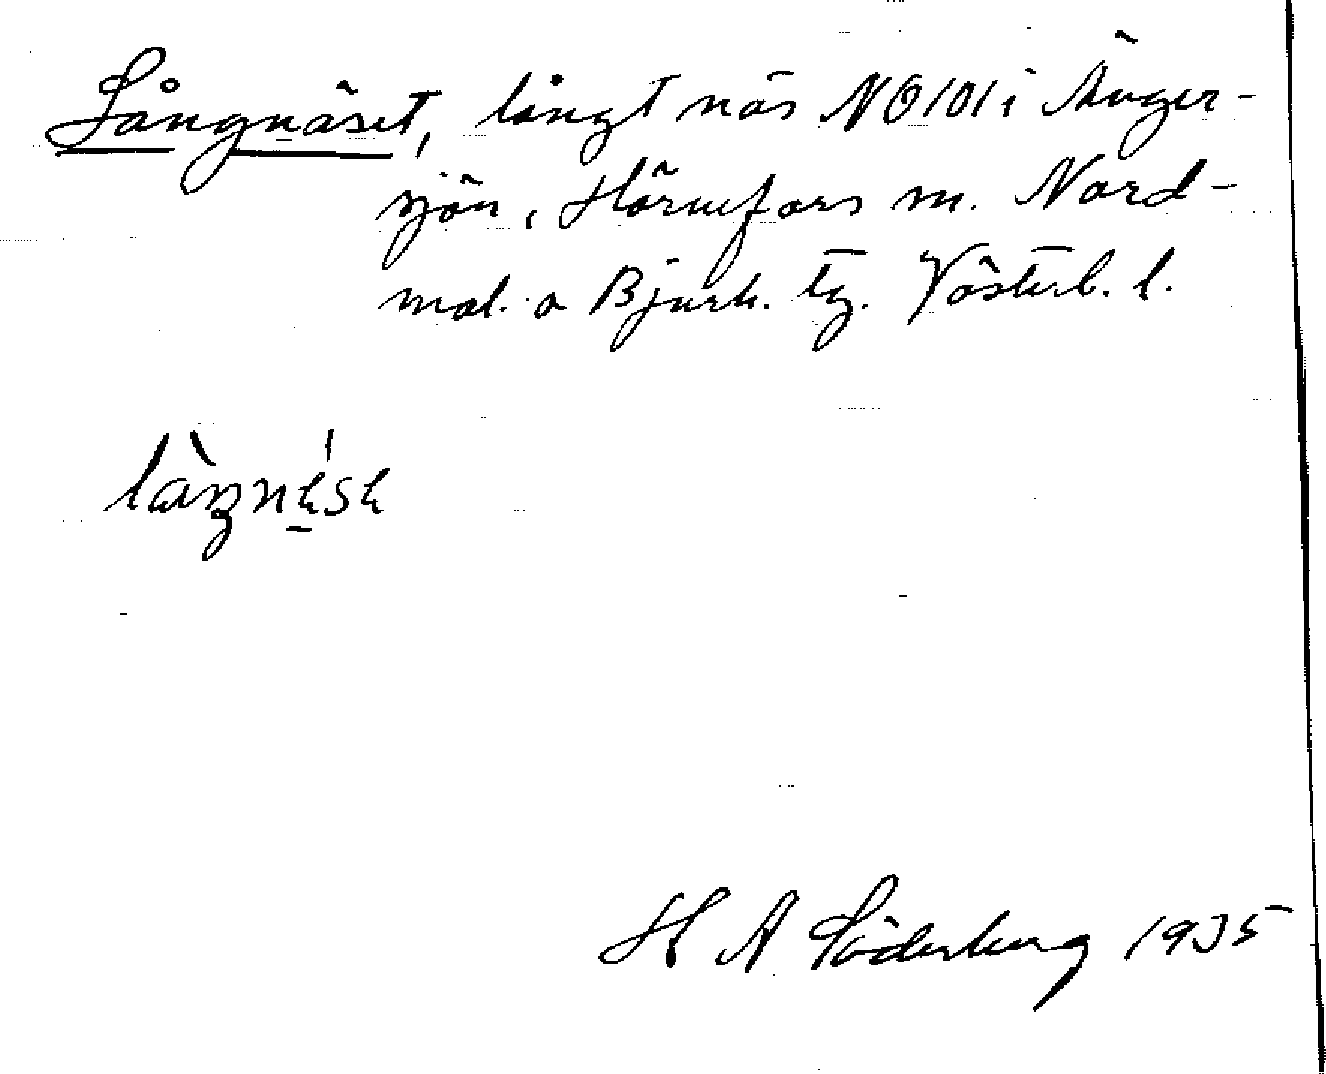 Långnäset, långt näs NO 101 i Änger-
sjön, Hörnefors m. Nord-
mal. o Bjurh. tg. Västerb. l.
H A Söderberg 1935